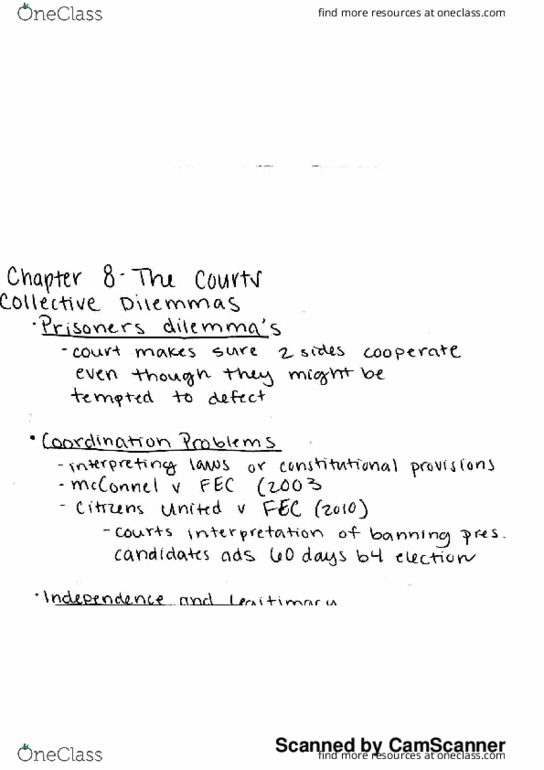 OneClass
find more resources at oneclass.com
Chapter 8 - The Courts
Collective Dilemmas
· Prisoners dilemma's
- court makes sure 2 sides cooperate
even though they might be
tempted to defect
· Coordination Problems
- interpreting laws or constitutional provisions
- McConnel v FEC (2003
- Citizens United v FEC (2010)
- courts interpretation of banning pres.
candidates ads 60 days b4 election
· Independence and Legitimacy
Scanned by CamScanner
OneClass
find more resources at oneclass.com